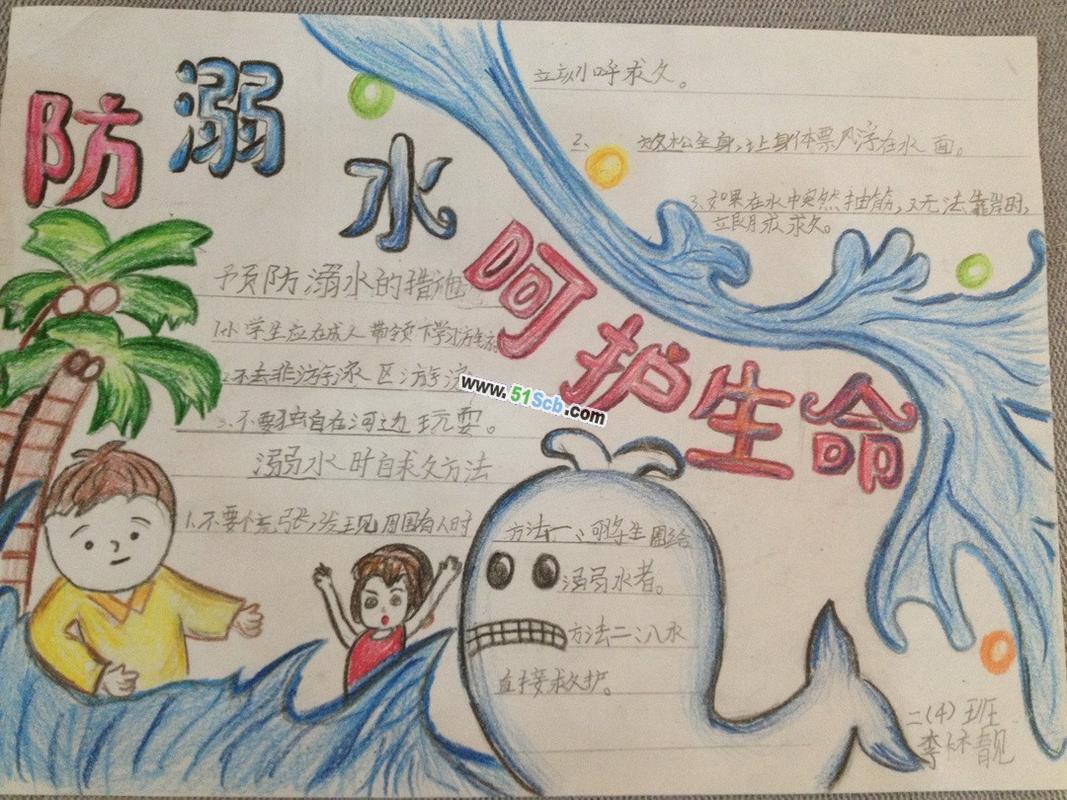 防溺水
呵护生命
预防溺水的措施
1.小学生应在成人带领下学习游泳
2.不去非游泳区游泳
3.不要独自在河边玩耍。
溺水时自求方法
1.不要慌张,发现周围有人时
立刻呼求久。
2、放松全身,让身体票风浮在水面。
3.如果在水中突然抽筋,又无法靠岸时,
立即求久。
www.51Scb.com
方法一:可学生圈给
溺水者。
方法二:八水
直接求久护。
二(4)班
李休靓